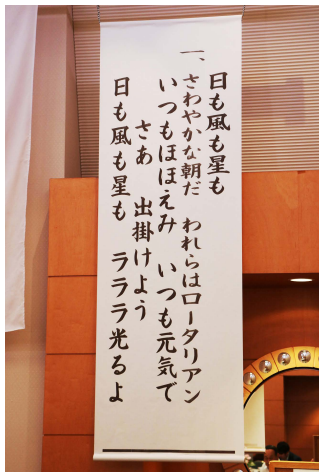 日も風も星も
一、さわやかな朝だ　われらはロータリアン
いつもほほえみ　いつも元気で
さあ　出掛けよう
日も風も星も　ラララ光るよ